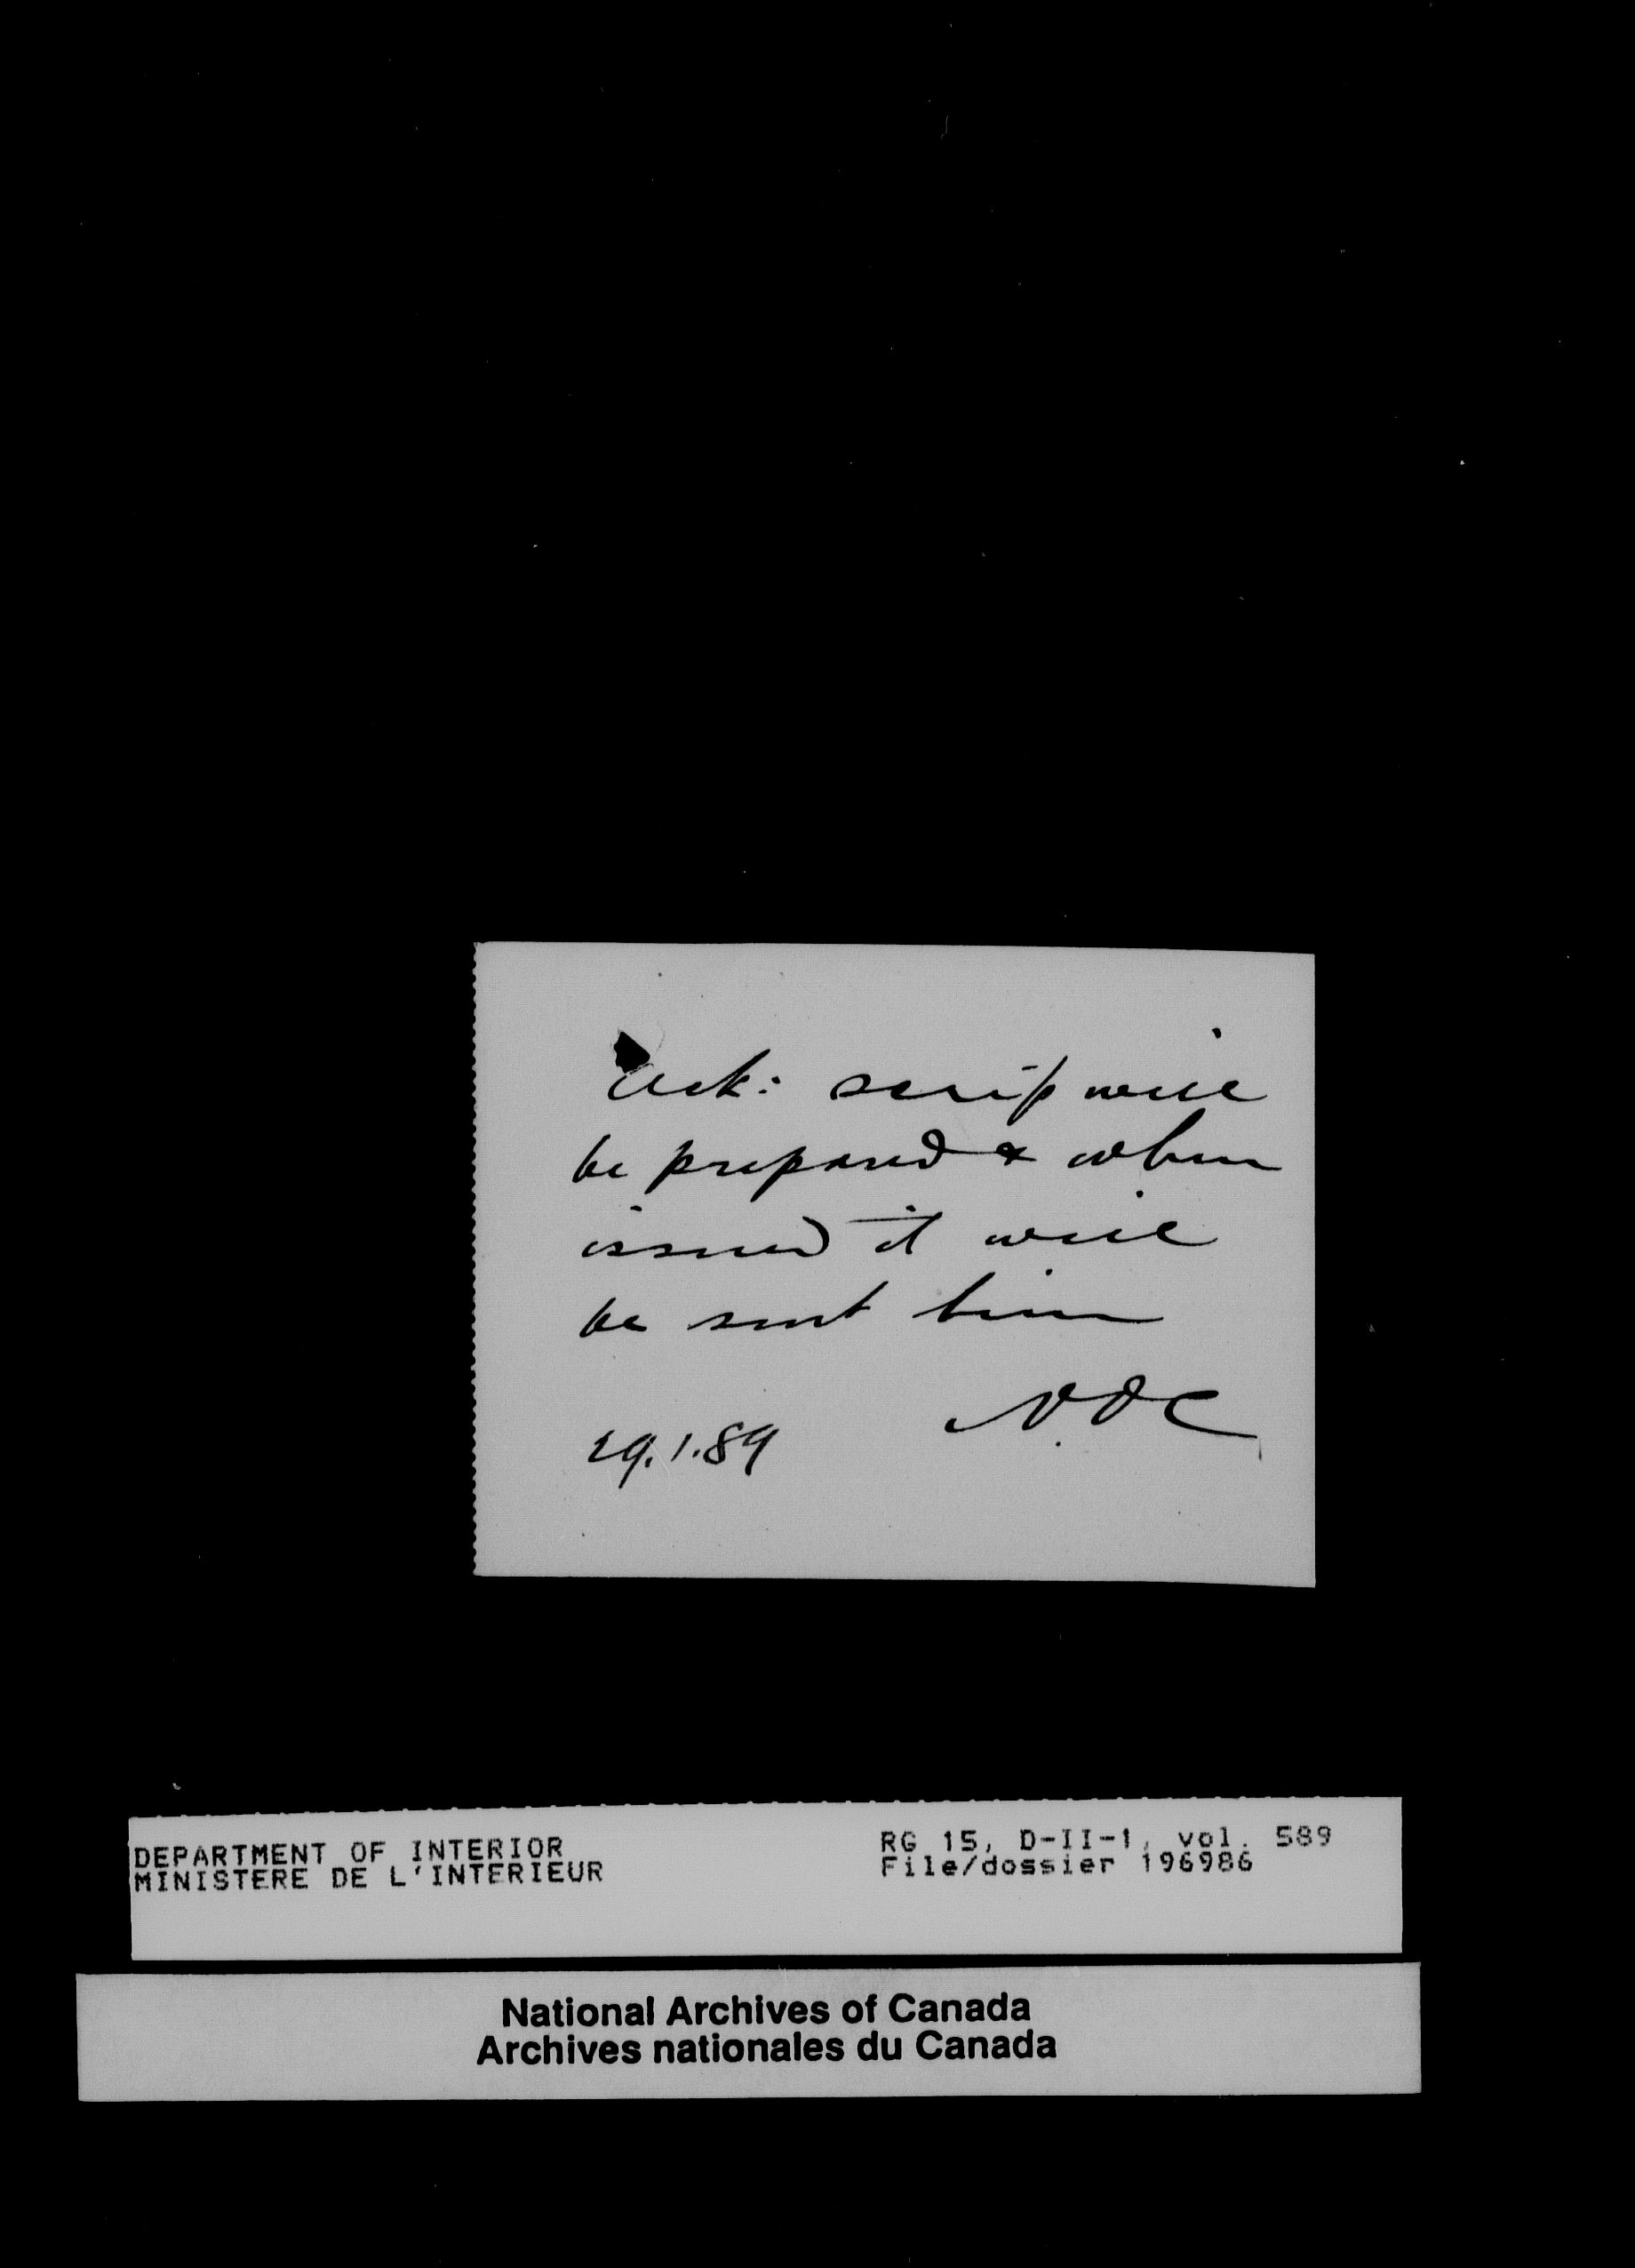 Ack: scrip will
be prepared & when
issued it will
be sent him
N.O.C
29.1.89
DEPARTMENT OF INTERIOR
MINISTERE DE L'INTERIEUR
RG 15, D-II-1, vol. 589
File/dossier 196986
National Archives of Canada
Archives nationales du Canada